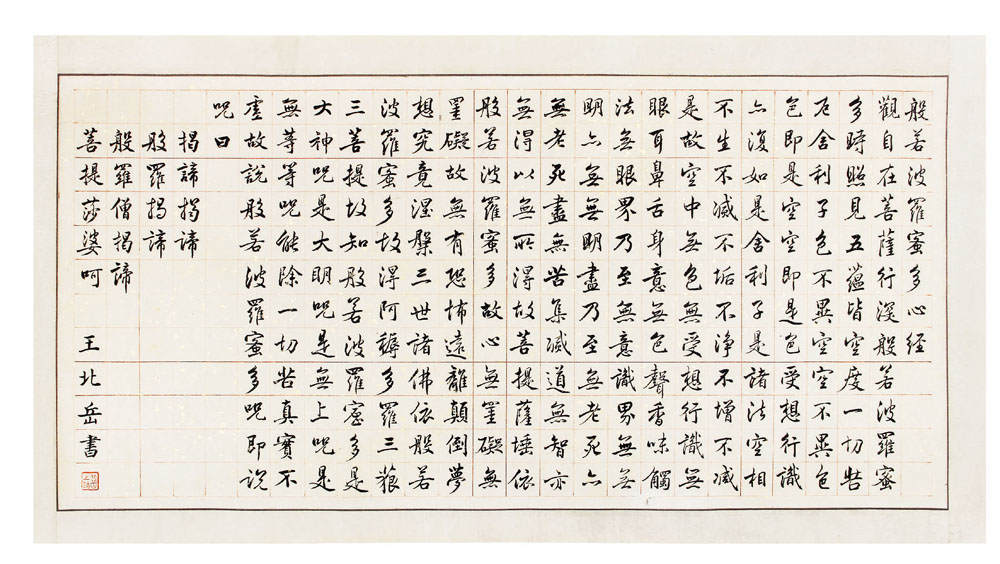 般若波羅蜜多心経
觀自在菩薩行深般若波羅蜜
多時照見五蘊皆空度一切苦
厄舍利子色不異空空不異色
色即是空空即是色受想行識
亦復如是舍利子是諸法空相
不生不滅不垢不淨不增不減
是故空中無色無受想行識無
眼耳鼻舌身意無色聲香味觸
法無眼界乃至無意識界無無
明亦無無明盡乃至無老死亦
無老死盡無苦集滅道無智亦
無得以無所得故菩提薩埵依
般若波羅蜜多故心無罣礙無
罣礙故無有恐怖遠離顛倒夢
想究竟涅槃三世諸佛依般若
波羅蜜多故得阿耨多羅三藐
三菩提故知般若波羅蜜多是
大神呪是大明呪是無上呪是
無等等呪能除一切苦真實不
虛故說般若波羅蜜多呪即說
呪曰
揭諦揭諦
般羅揭諦
般羅僧揭諦
菩提莎婆呵 王北岳書